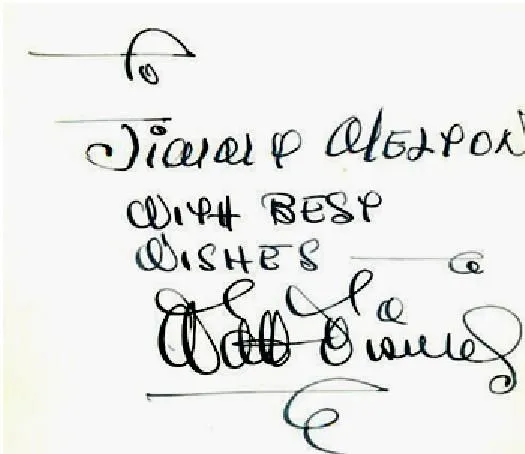 To
Jimmy WELDON
WITH BEST
WISHES
Walt Disney